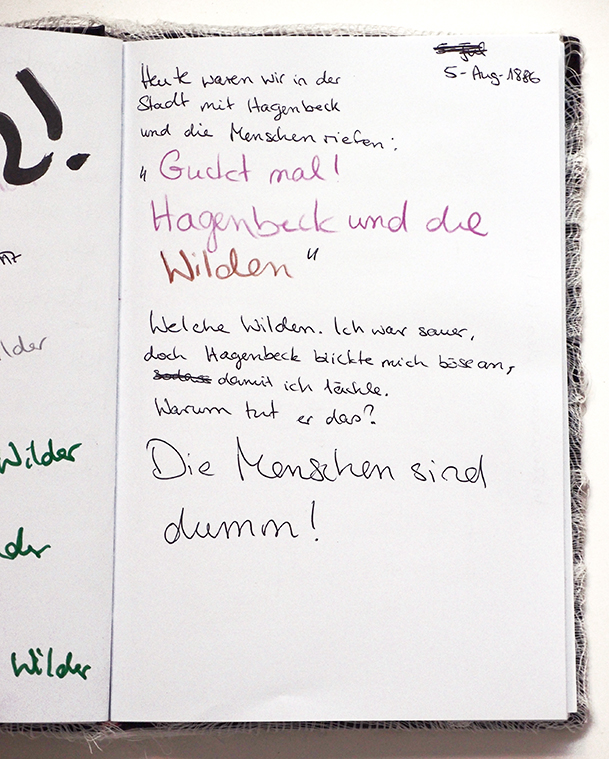 Wilder
Wilder
5-Aug-1886
Heute waren wir in der
Stadt mit Hagenbeck
und die Menschen riefen:
"Guckt mal!
Hagenbeck und die
Wilden"
Welche Wilden. Ich war sauer,
doch Hagenbeck blickte mich böse an,
sodass damit ich lächle.
Warum tut er das?
Die Menschen sind
dumm!